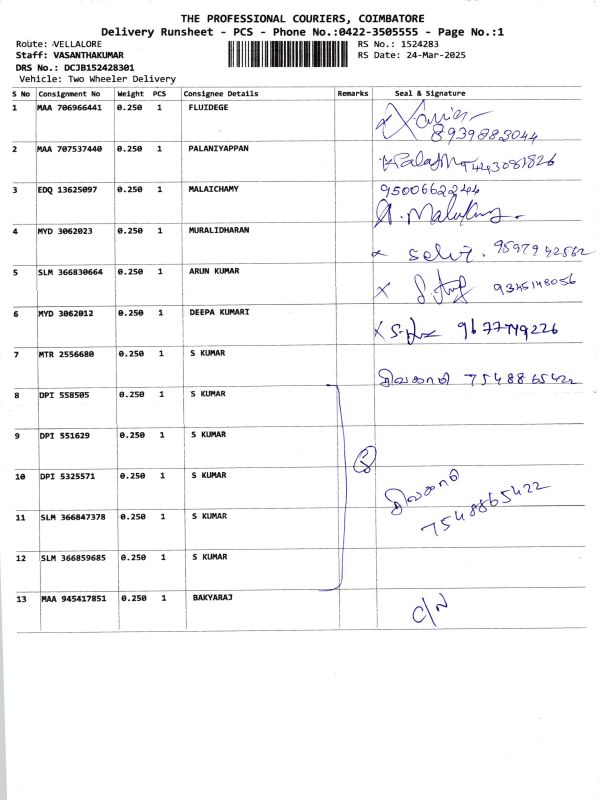 THE PROFESSIONAL COURIERS, COIMBATORE
Delivery Runsheet - PCS - Phone No.:0422-3505555 - Page No.:1
Route: VELLALORE RS No.: 1524283
Staff: VASANTHAKUMAR RS Date: 24-Mar-2025
DRS No.: DCJB152428301
Vehicle: Two Wheeler Delivery
S No Consignment No Weight PCS Consignee Details Remarks Seal & Signature
1 MAA 706966441 0.250 1 FLUIDEGE
8939883044
2 MAA 707537440 0.250 1 PALANIYAPPAN
3 EDQ 13625097 0.250 1 MALAICHAMY 9500662244
4 MYD 3062023 0.250 1 MURALIDHARAN
x selvi.
5 SLM 366830664 0.250 1 ARUN KUMAR
x 9345148056
6 MYD 3062012 0.250 1 DEEPA KUMARI
x 9677779226
7 MTR 2556680 0.250 1 S KUMAR
7548865422
8 DPI 558505 0.250 1 S KUMAR
9 DPI 551629 0.250 1 S KUMAR
10 DPI 5325571 0.250 1 S KUMAR
7548865422
11 SLM 366847378 0.250 1 S KUMAR
12 SLM 366859685 0.250 1 S KUMAR
13 MAA 945417851 0.250 1 BAKYARAJ
C/N